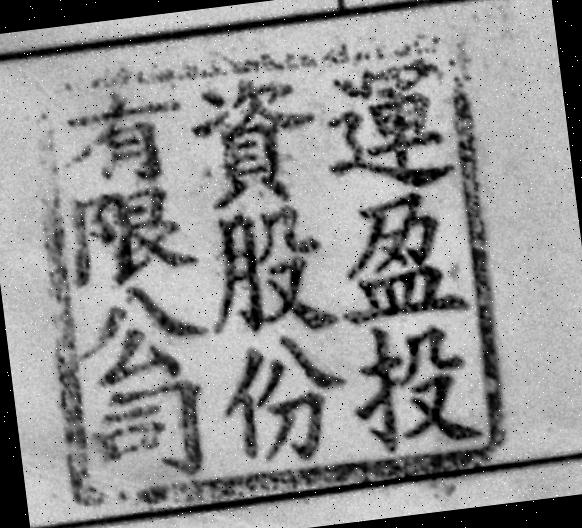 運盈投
資股份
有限公司